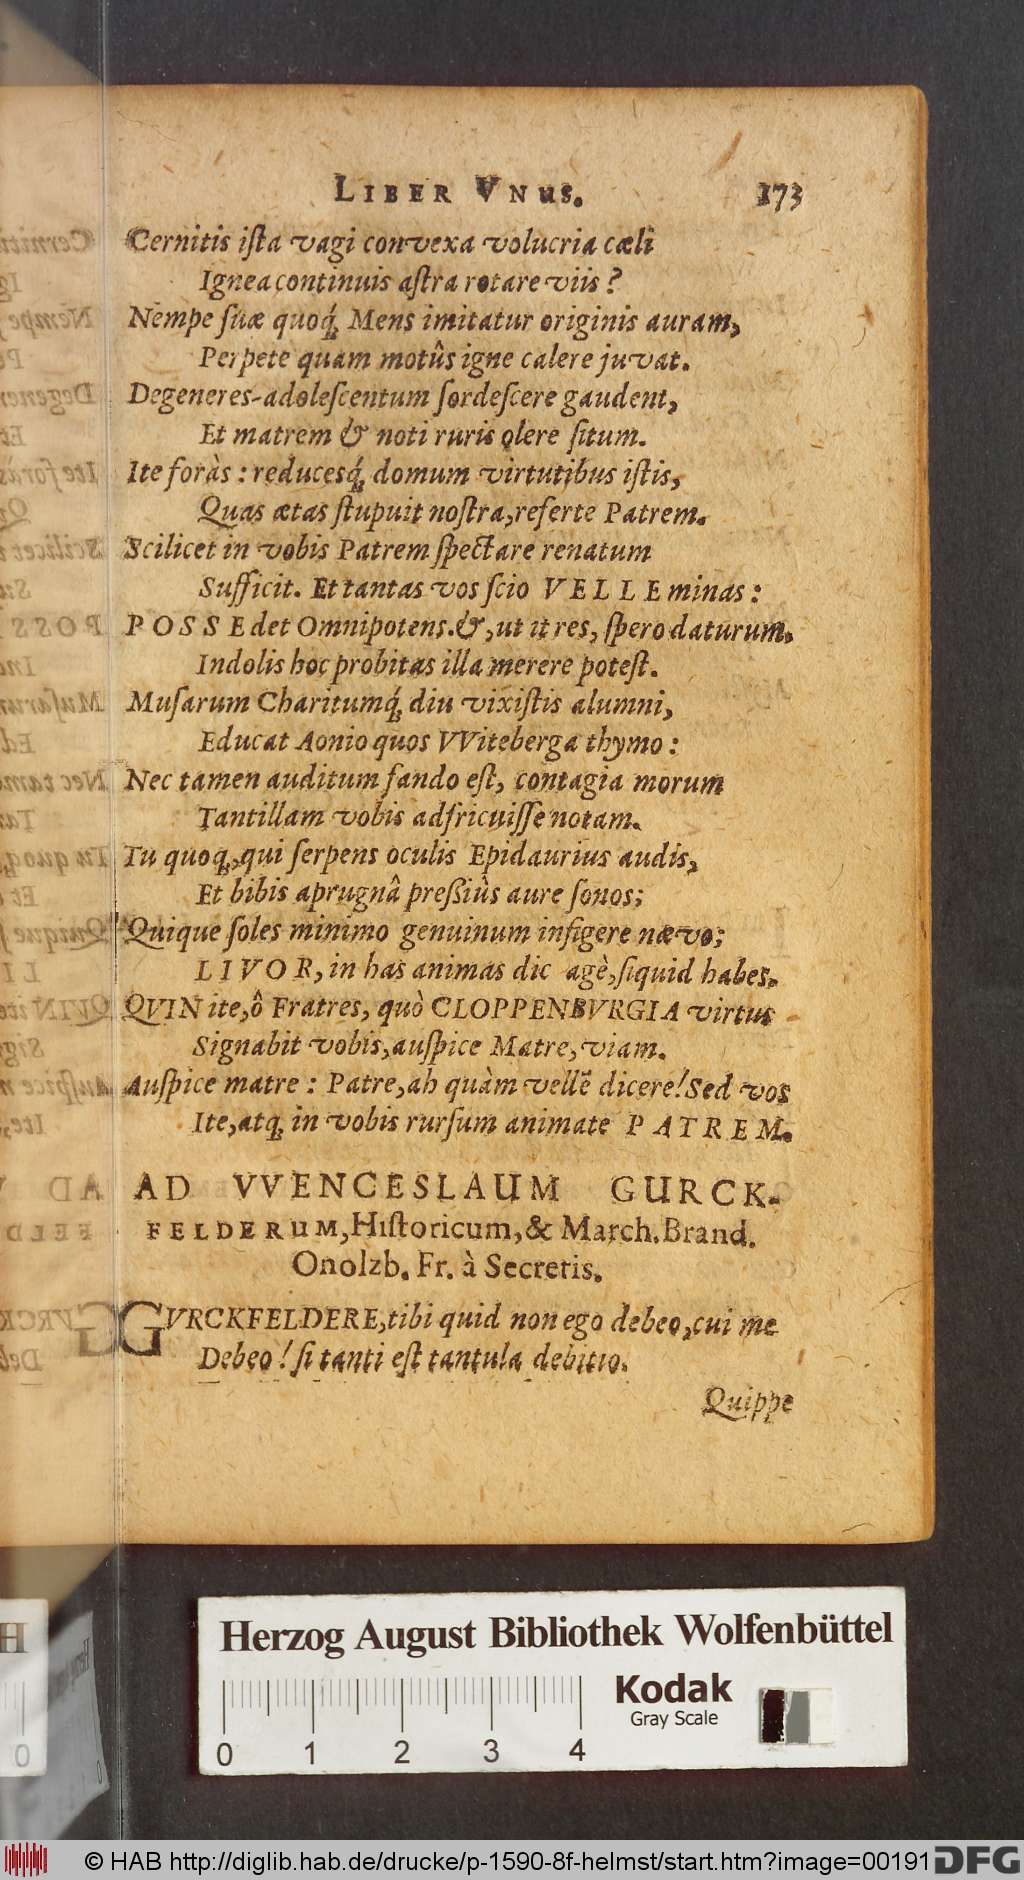 LIBER VNUS. 173
Cernitis iſta vagi convexa volucria cæli
Ignea continuis aſtra rotare viis?
Nempe ſuæ quoq́; Mens imitatur originis auram,
Perpete quam motûs igne calere juvat.
Degeneres adoleſcentum ſordeſcere gaudent,
Et matrem & noti ruris olere ſitum.
Ite foràs: reducesq́; domum virtutibus iſtis,
Quas ætas ſtupuit noſtra, referte Patrem.
Scilicet in vobis Patrem ſpectare renatum
Sufficit. Et tantas vos ſcio VELLE minas:
POSSE det Omnipotens. &, ut it res, ſpero daturum.
Indolis hoc probitas illa merere poteſt.
Muſarum Charitumq́; diu vixiſtis alumni,
Educat Aonio quos VViteberga thymo:
Nec tamen auditum fando eſt, contagia morum
Tantillam vobis adfricuiſſe notam.
Tu quoq;, qui ſerpens oculis Epidaurius audis,
Et bibis aprugnâ preßiùs aure ſonos;
Quique ſoles minimo genuinum infigere nævo;
LIVOR, in has animas dic agè, ſiquid habes.
QVIN ite, ô Fratres, quò CLOPPENBVRGIA virtus
Signabit vobis, auſpice Matre, viam.
Auſpice matre: Patre, ah quàm velle dicere! Sed vos
Ite, atq; in vobis rurſum animate PATREM.
AD VVENCESLAUM GURCK-
FELDERUM, Hiſtoricum, & March. Brand.
Onolzb. Fr. à Secretis.
GVRCKFELDERE, tibi quid non ego debeo, cui me
Debeo! ſi tanti eſt tantula debitio.
Quippe
Herzog August Bibliothek Wolfenbüttel
Kodak
Gray Scale
0 1 2 3 4
© HAB http://diglib.hab.de/drucke/p-1590-8f-helmst/start.htm?image=00191
DFG